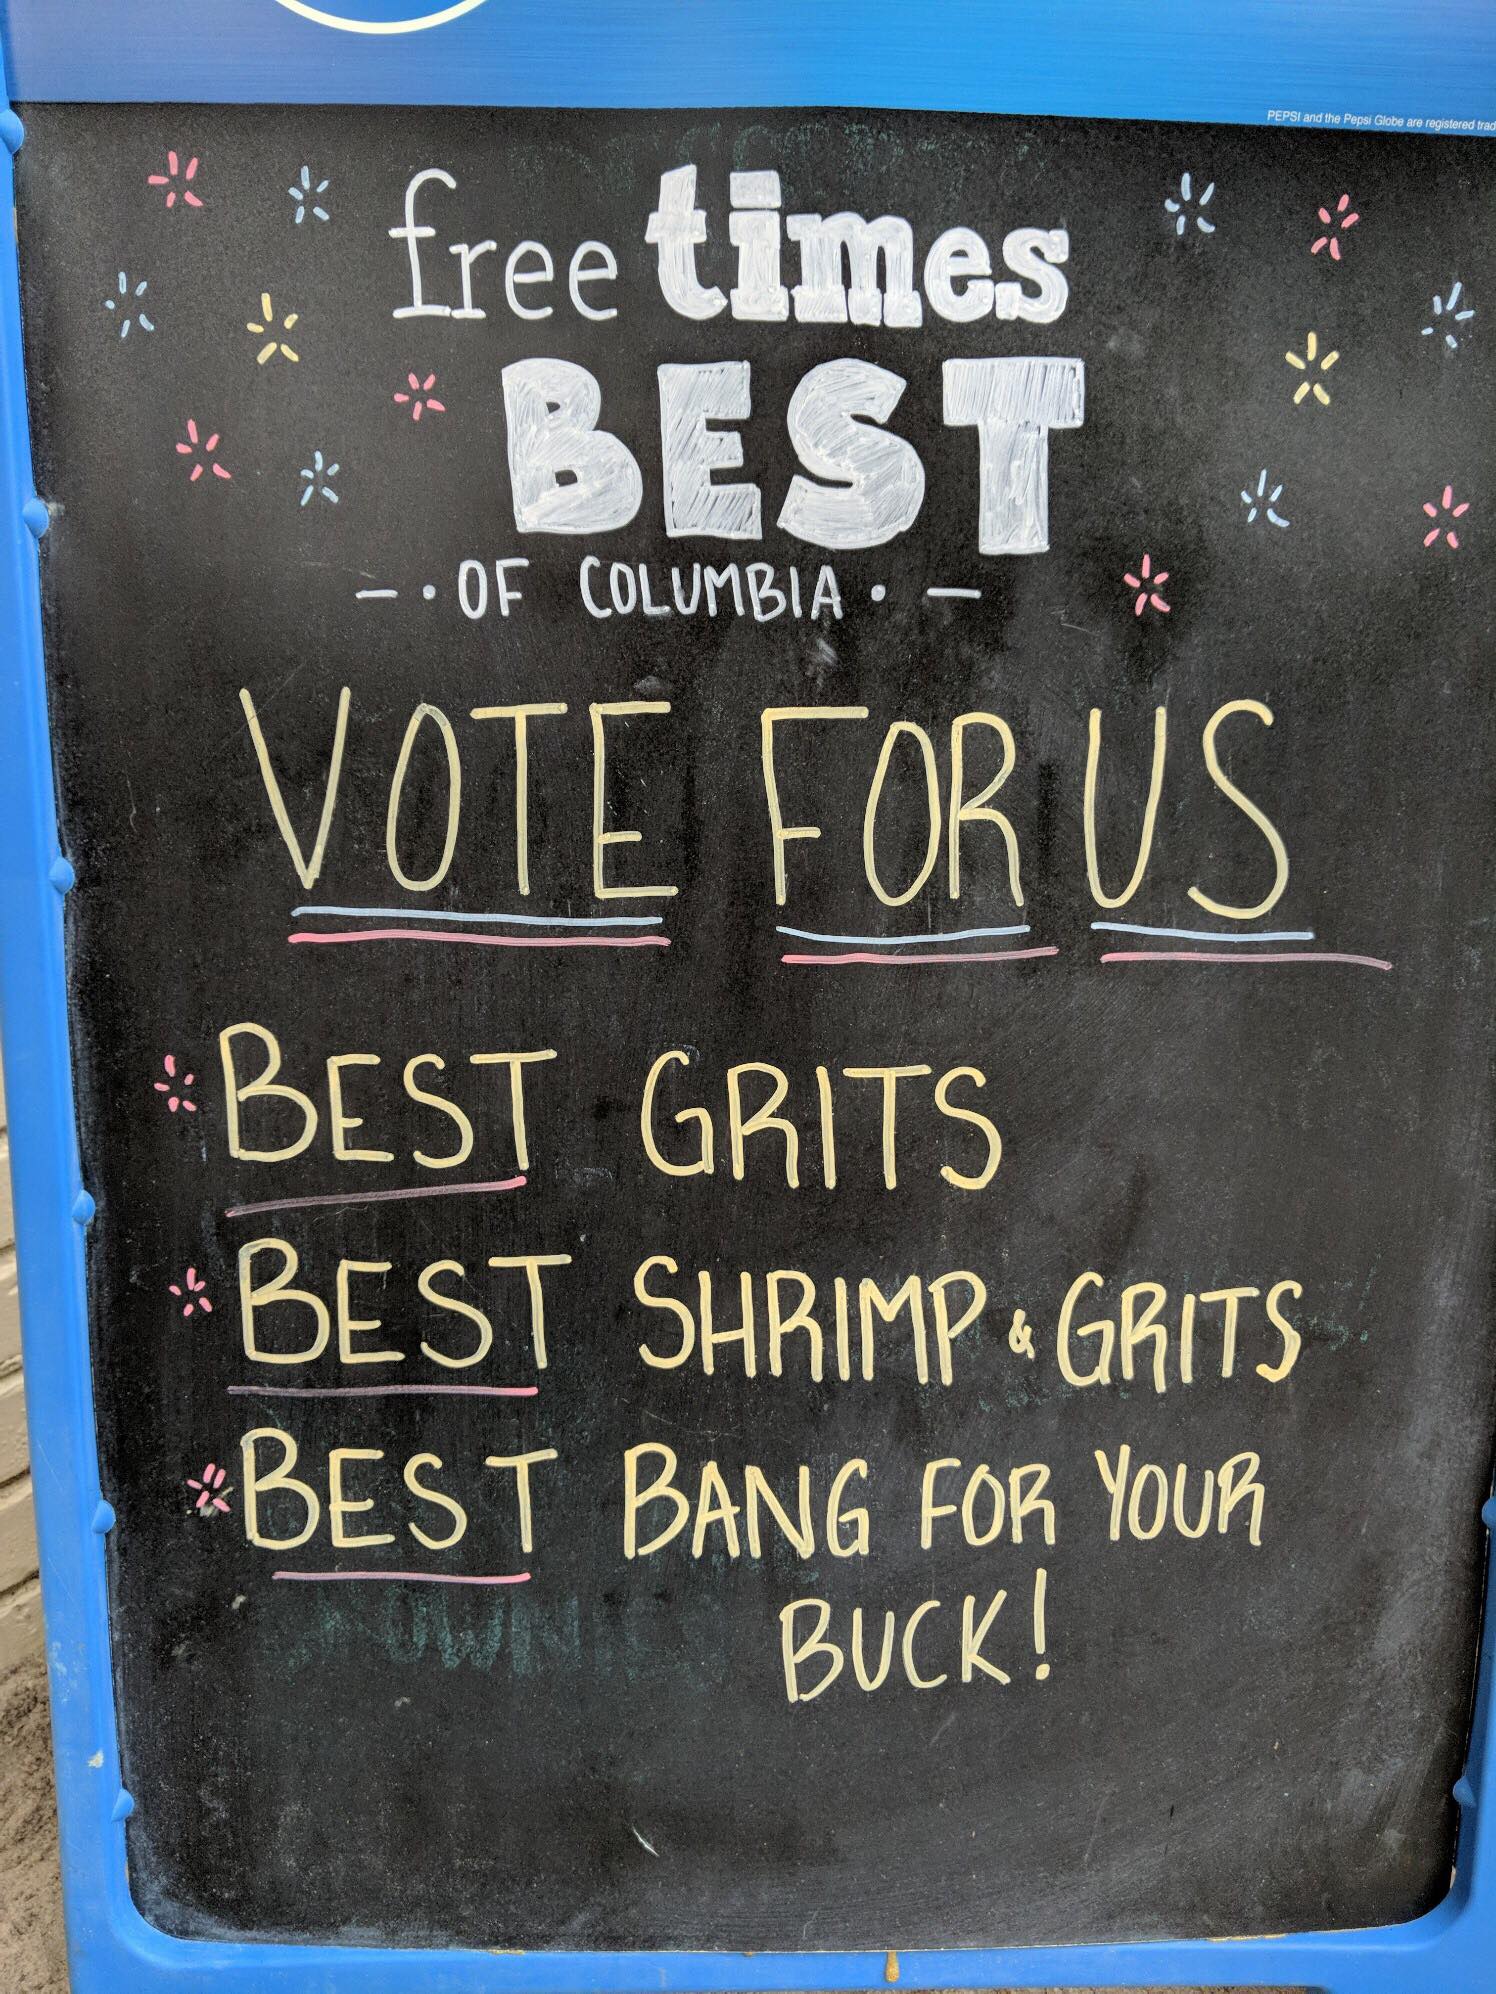 PEPSI and the Pepsi Globe are registered trad
free times
BEST
—·OF COLUMBIA·—
VOTE FOR US
BEST GRITS
BEST SHRIMP & GRITS
BEST BANG FOR YOUR
BUCK!